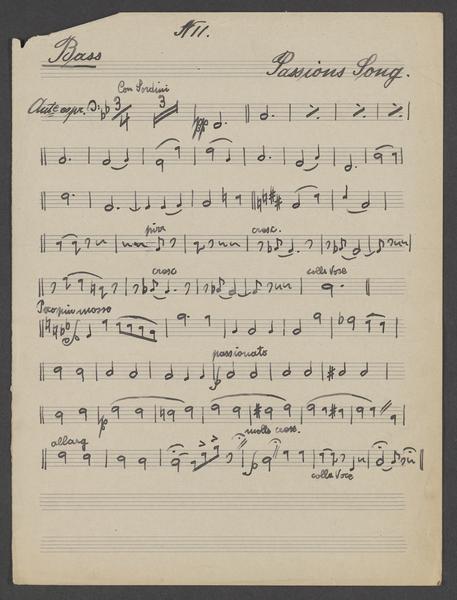 N 11.
Bass
Passions Song.
Con Sordini
Andte espr. 3/4 3
pp
pizz cresc.
cresc colla Voce
Poco piu mosso
passionato
p molto cresc.
allarg
colla Voce